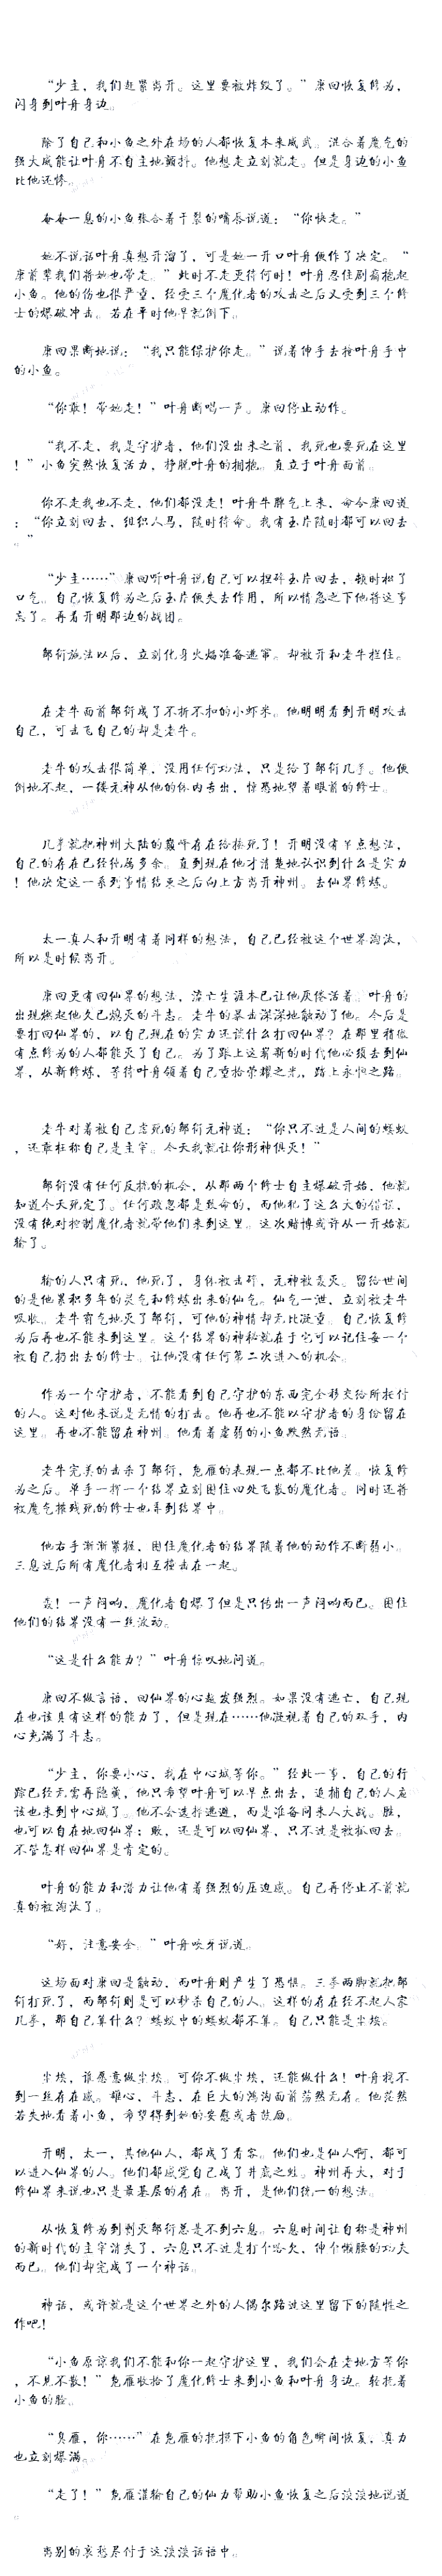 “少主，我们赶紧离开。这里要被炸毁了。”康回恢复修为，
闪身到叶舟身边。
除了自己和小鱼之外在场的人都恢复本来威武。混合着魔气的
强大威能让叶舟不自主地颤抖。他想走立刻就走。但是身边的小鱼
比他还惨。
奄奄一息的小鱼张合着干裂的嘴唇说道：“你快走。”
她不说话叶舟真想开溜了，可是她一开口叶舟便作了决定。“
康前辈我们将她也带走。”此时不走更待何时！叶舟忍住剧痛抱起
小鱼。他的伤也很严重，经受三个魔化者的攻击之后又受到三个修
士的爆破冲击。若在平时他早就倒下。
康回果断地说：“我只能保护你走。”说着伸手去拎叶舟手中
的小鱼。
“你敢！带她走！”叶舟断喝一声。康回停止动作。
“我不走，我是守护者，他们没出来之前，我死也要死在这里
！”小鱼突然恢复活力，挣脱叶舟的拥抱。直立于叶舟面前。
你不走我也不走，他们都没走！叶舟牛脾气上来，命令康回道
：“你立刻回去，组织人马，随时待命。我有玉片随时都可以回去
。”
“少主……”康回听叶舟说自己可以捏碎玉片回去，顿时松了
口气。自己恢复修为之后玉片便失去作用，所以情急之下他将这事
忘了。再看开明那边的战团。
邹衍施法以后，立刻化身火焰准备逃窜。却被开和老牛拦住。
在老牛面前邹衍成了不折不扣的小虾米。他明明看到开明攻击
自己，可击飞自己的却是老牛。
老牛的攻击很简单，没用任何功法，只是给了邹衍几拳。他便
倒地不起，一缕元神从他的体内窜出，惊恐地望着眼前的修士。
几拳就把神州大陆的巅峰存在给揍死了！开明没有半点想法，
自己的存在已经纯属多余。直到现在他才清楚地认识到什么是实力
！他决定这一系列事情结束之后向上方离开神州。去仙界修炼。
太一真人和开明有着同样的想法，自己已经被这个世界淘汰，
所以是时候离开。
康回更有回仙界的想法，流亡生涯本已让他灰倦活着。叶舟的
出现燃起他久已熄灭的斗志。老牛的暴击深深地触动了他。今后是
要打回仙界的，以自己现在的实力还谈什么打回仙界？在那里稍微
有点修为的人都能灭了自己。为了踏上这崭新的时代他必须去到仙
界，从新修炼，等待叶舟领着自己重拾荣耀之光，踏上永恒之路。
老牛对着被自己击死的邹衍元神道：“你只不过是人间的蝼蚁
，还敢枉称自己是主宰。今天我就让你形神俱灭！”
邹衍没有任何反抗的机会，从那两个修士自主爆破开始，他就
知道今天死定了。任何疏忽都是致命的，而他犯了这么大的错误，
没有绝对控制魔化者就带他们来到这里。这次赌博或许从一开始就
输了。
输的人只有死，他死了，身体被击碎，元神被轰灭。留给世间
的是他累积多年的灵气和修炼出来的仙气。仙气一泄，立刻被老牛
吸收。老牛霸气地灭了邹衍，可他的神情却无比凝重。自己恢复修
为后再也不能来到这里。这个结界的神秘就在于它可以记住每一个
被自己扔出去的修士。让他没有任何第二次进入的机会。
作为一个守护者，不能看到自己守护的东西完全移交给所托付
的人。这对他来说是无情的打击。他再也不能以守护者的身份留在
这里。再也不能留在神州。他看着虚弱的小鱼默然无语。
老牛完美的击杀了邹衍，凫雁的表现一点都不比他差。恢复修
为之后。单手一挥一个结界立刻困住四处飞散的魔化者。同时还将
被魔气摧残死的修士也弄到结界中。
他右手渐渐紧握，困住魔化者的结界随着他的动作不断弱小。
三息过后所有魔化者相互撞击在一起。
轰！一声闷响，魔化者自爆了但是只传出一声闷响而已。困住
他们的结界没有一丝波动。
“这是什么能力？”叶舟惊叹地问道。
康回不做言语，回仙界的心越发强烈。如果没有逃亡，自己现
在也该具有这样的能力了，但是现在……他凝视着自己的双手，内
心充满了斗志。
“少主，你要小心，我在中心城等你。”经此一事，自己的行
踪已经无需再隐藏，他只希望叶舟可以早点出去，追捕自己的人应
该也来到中心城了。他不会选择逃避，而是准备同来人大战。胜，
也可以自在地回仙界；败，还是可以回仙界，只不过是被抓回去。
不管怎样回仙界是肯定的。
叶舟的能力和潜力让他有着强烈的压迫感。自己再停止不前就
真的被淘汰了。
“好，注意安全。”叶舟吱身说道。
这场面对康回是触动，而叶舟则产生了恐惧。三拳两脚就把邹
衍打死了，而邹衍则是可以秒杀自己的人。这样的存在经不起人家
几拳，那自己算什么？蝼蚁中的蝼蚁都不算。自己只能是尘埃。
尘埃，谁愿意做尘埃。可你不做尘埃，还能做什么！叶舟找不
到一丝存在感。雄心、斗志，在巨大的鸿沟面前荡然无存。他茫然
若失地看着小鱼，希望得到她的安慰或者鼓励。
开明，太一，其他仙人，都成了看客。他们也是仙人啊，都可
以进入仙界的人。他们都感觉自己成了井底之蛙。神州再大，对于
修仙界来说也只是最基层的存在。离开，是他们统一的想法。
从恢复修为到剿灭邹衍总是不到六息。六息时间让自称是神州
的新时代的主宰消失了，六息只不过是打个哈欠，伸个懒腰的功夫
而已。他们却完成了一个神话。
神话，或许就是这个世界之外的人偶尔路过这里留下的随性之
作吧！
“小鱼原谅我们不能和你一起守护这里，我们会在老地方等你
，不见不散！”凫雁收拾了魔化修士来到小鱼和叶舟身边。轻抚着
小鱼的脸。
“臭雁，你……”在凫雁的抚摸下小鱼的角色瞬间恢复，真力
也立刻爆满。
“走了！”凫雁灌输自己的仙力帮助小鱼恢复之后淡淡地说道
。
离别的哀愁尽付于这淡淡话语中。